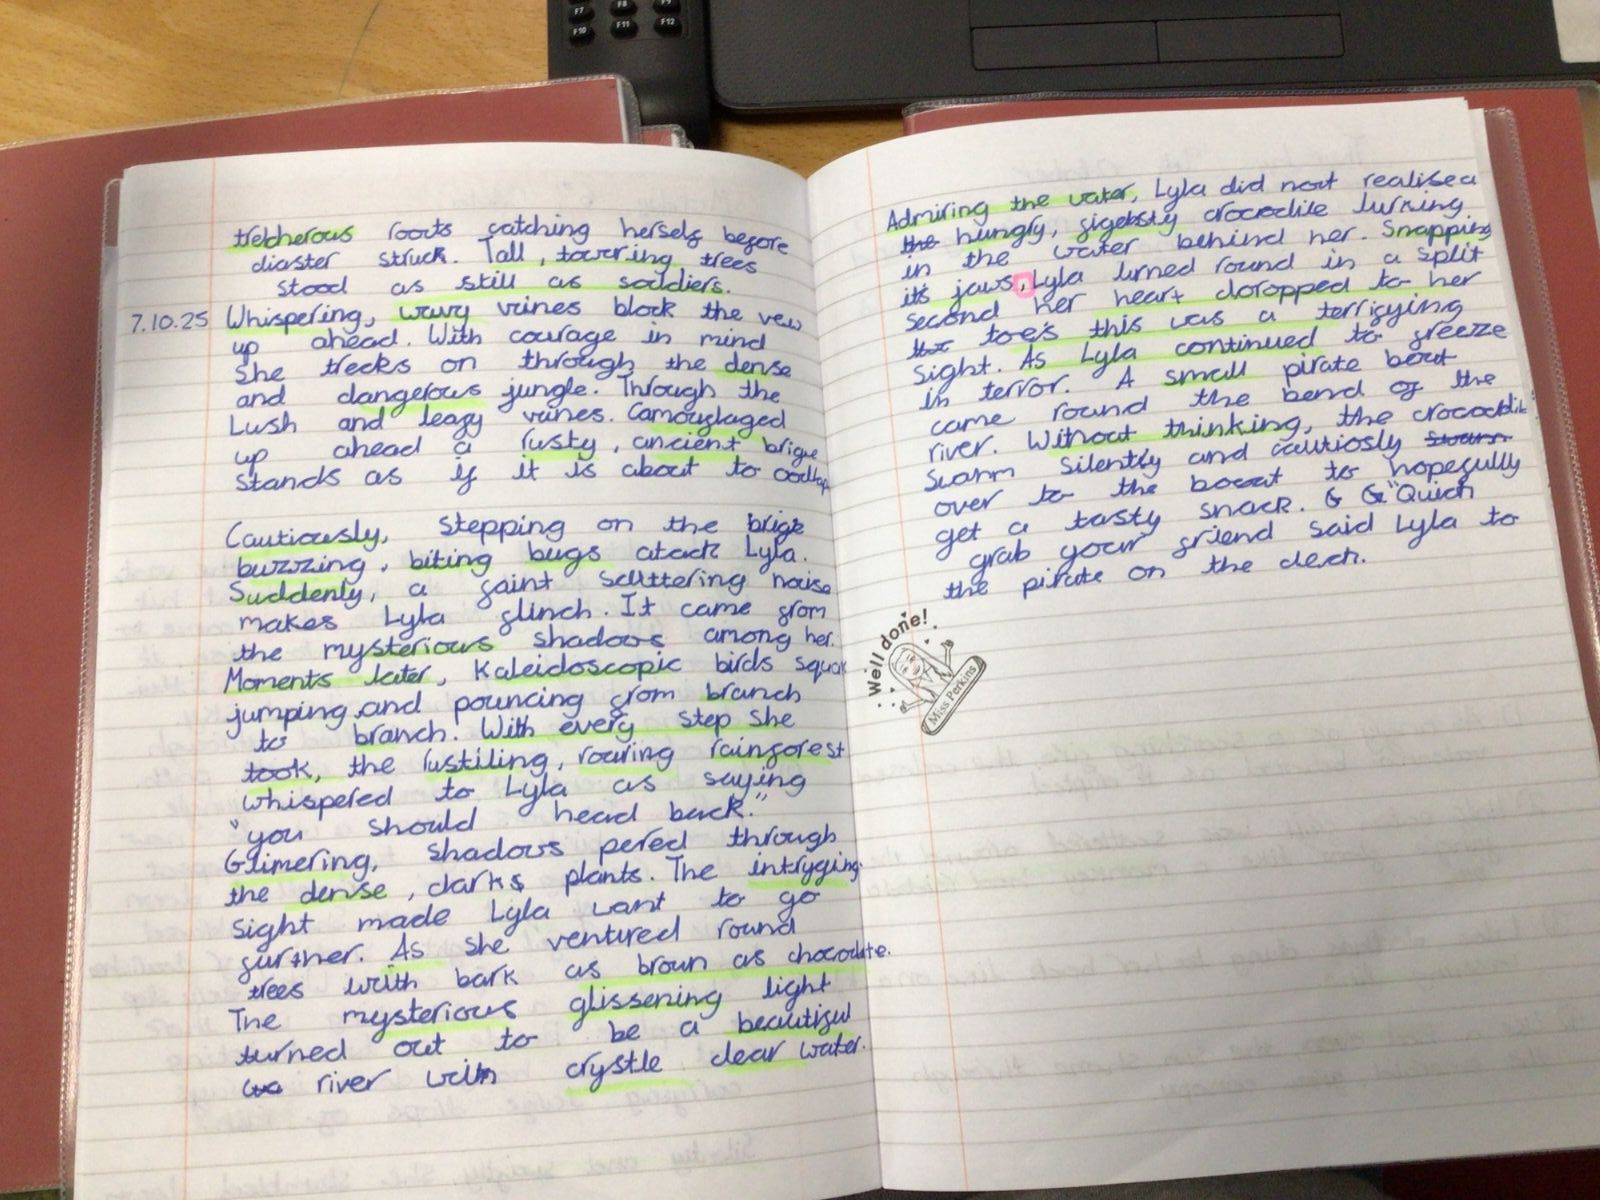 F7
F8
F9
F10
F11
F12
trelcherous roots catching herself before
diaster struck. Tall, towring trees
stood as still as soldiers.
7.10.25 Whispering, wavy vines block the vew
up ahead. With courage in mind
she trecks on through the dense
and dangerous jungle. Through the
Lush and leafy vines. Camouflaged
up ahead a rusty, ancient brige
stands as if it is about to
Cautiously, stepping on the brige
buzzing, biting bugs atack Lyla.
Suddenly, a faint scuttering noise
makes Lyla flinch. It came from
the mysterious shadows among her.
Moments later, kaleidoscopic birds squak
jumping and pouncing from branch
to branch. With every step she
took, the rustiling, roaring rainforest
whispered to Lyla as saying
"you should head back."
Glimering, shadows pered through
the dense, dark plants. The intryging
sight made Lyla want to go
further. As she ventured round
trees with bark as brown as chocolate.
The mysterious glissening light
turned out to be a beautiful
river with crystle clear water.
Admiring the water, Lyla did not realise a
the hungry, crocodile lurking
in the water behind her. Snapping
its jaws, Lyla turned round in a split
second her heart doropped to her
toes this was a terrifying
sight. As Lyla continued to freeze
in terror. A small pirate boat
came round the bend of the
river. Without thinking, the
swam silently and cautiosly swam
over to the boat to hopefully
get a tasty snack. G G "Quick
grab your friend said Lyla to
the pirate on the deck.
Well done!
Miss Perkins